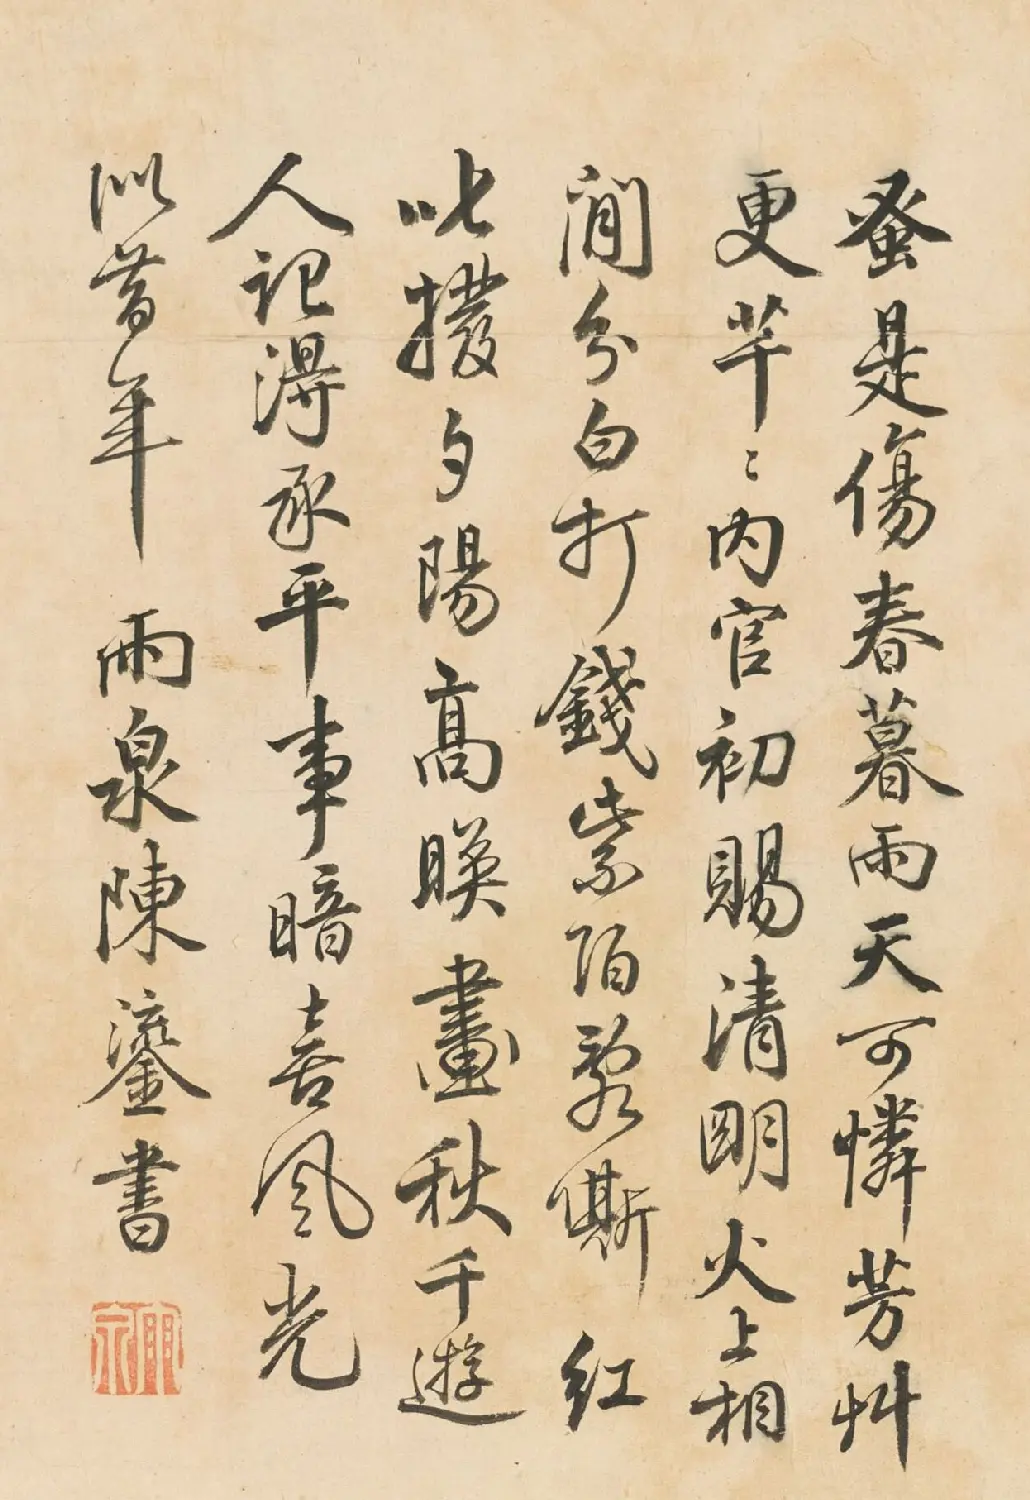 蚤是傷春暮雨天可憐芳艸
更芊〻内官初賜清明火上相
閒分白打錢紫陌亂嘶紅
叱撥夕陽髙暎畫秋千遊
人記得承平事暗喜風光
似昔年 雨泉陳鎏書
雨泉